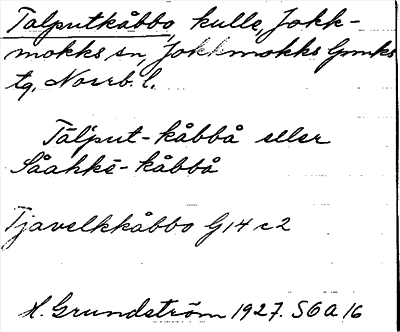 Talputkåbbo, kulle, Jokk-
mokks sn, Jokkmokks lpmks
tg, Norrb. l.
Tālput-kåbbå eller
Såahkē-kåbbå
Tjavelkkåbbo G 14 c 2
H. Grundström 1927. SOA 16